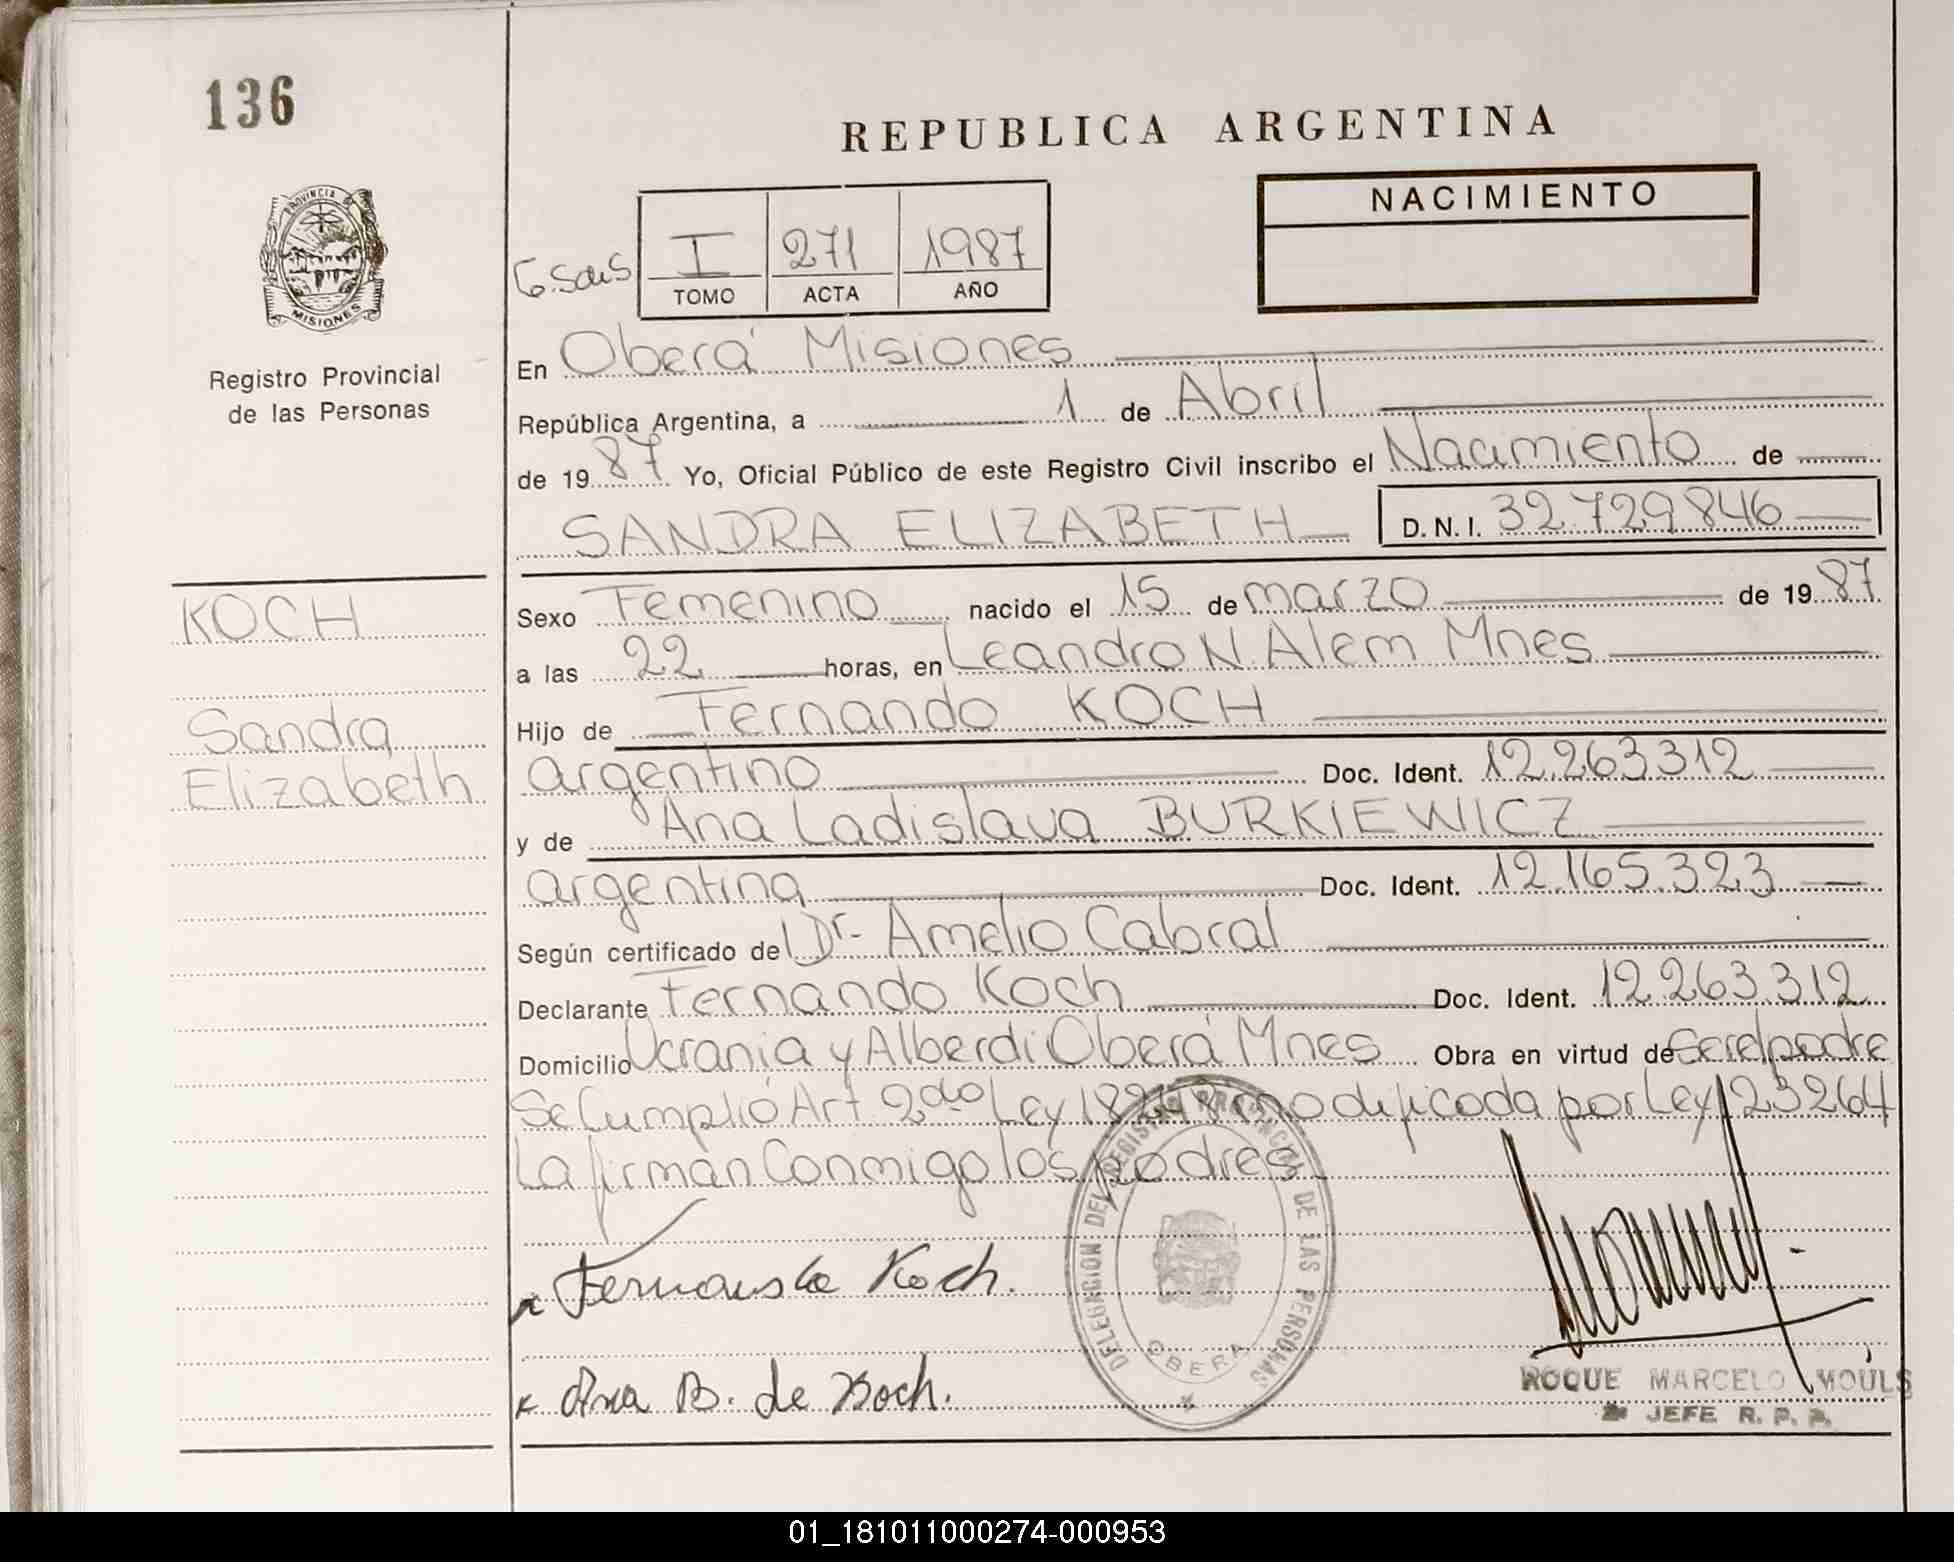 136
PROVINCIA DE
MISIONES
Registro Provincial
de las Personas
KOCH
Sandra
Elizabeth
REPUBLICA ARGENTINA
I 271 1987
TOMO ACTA AÑO
NACIMIENTO
En Oberá Misiones
República Argentina, a 1 de Abril
de 1987 Yo, Oficial Público de este Registro Civil inscribo el Nacimiento de
SANDRA ELIZABETH D.N.I. 32.729.846
Sexo Femenino nacido el 15 de marzo de 1987
a las 22 horas, en Leandro N. Alem Mnes
Hijo de Fernando KOCH
argentino Doc. Ident. 12.263.312
y de Ana Ladislava BURKIEWICZ
argentina Doc. Ident. 12.165.323
Según certificado de Dr. Amelio Cabral
Declarante Fernando Koch Doc. Ident. 12.263.312
Domicilio Ucrania y Alberdi Oberá Mnes Obra en virtud de Ser el padre
Se Cumplió Art 2do Ley 18248 modificada por Ley 23264
La firman Conmigo los padres
Fernando Koch.
Ana B. de Koch.
DELEGACION DEL REGISTRO PROVINCIAL DE LAS PERSONAS
OBERA
ROQUE MARCELO MOULS
JEFE R. P. P.
01_181011000274-000953